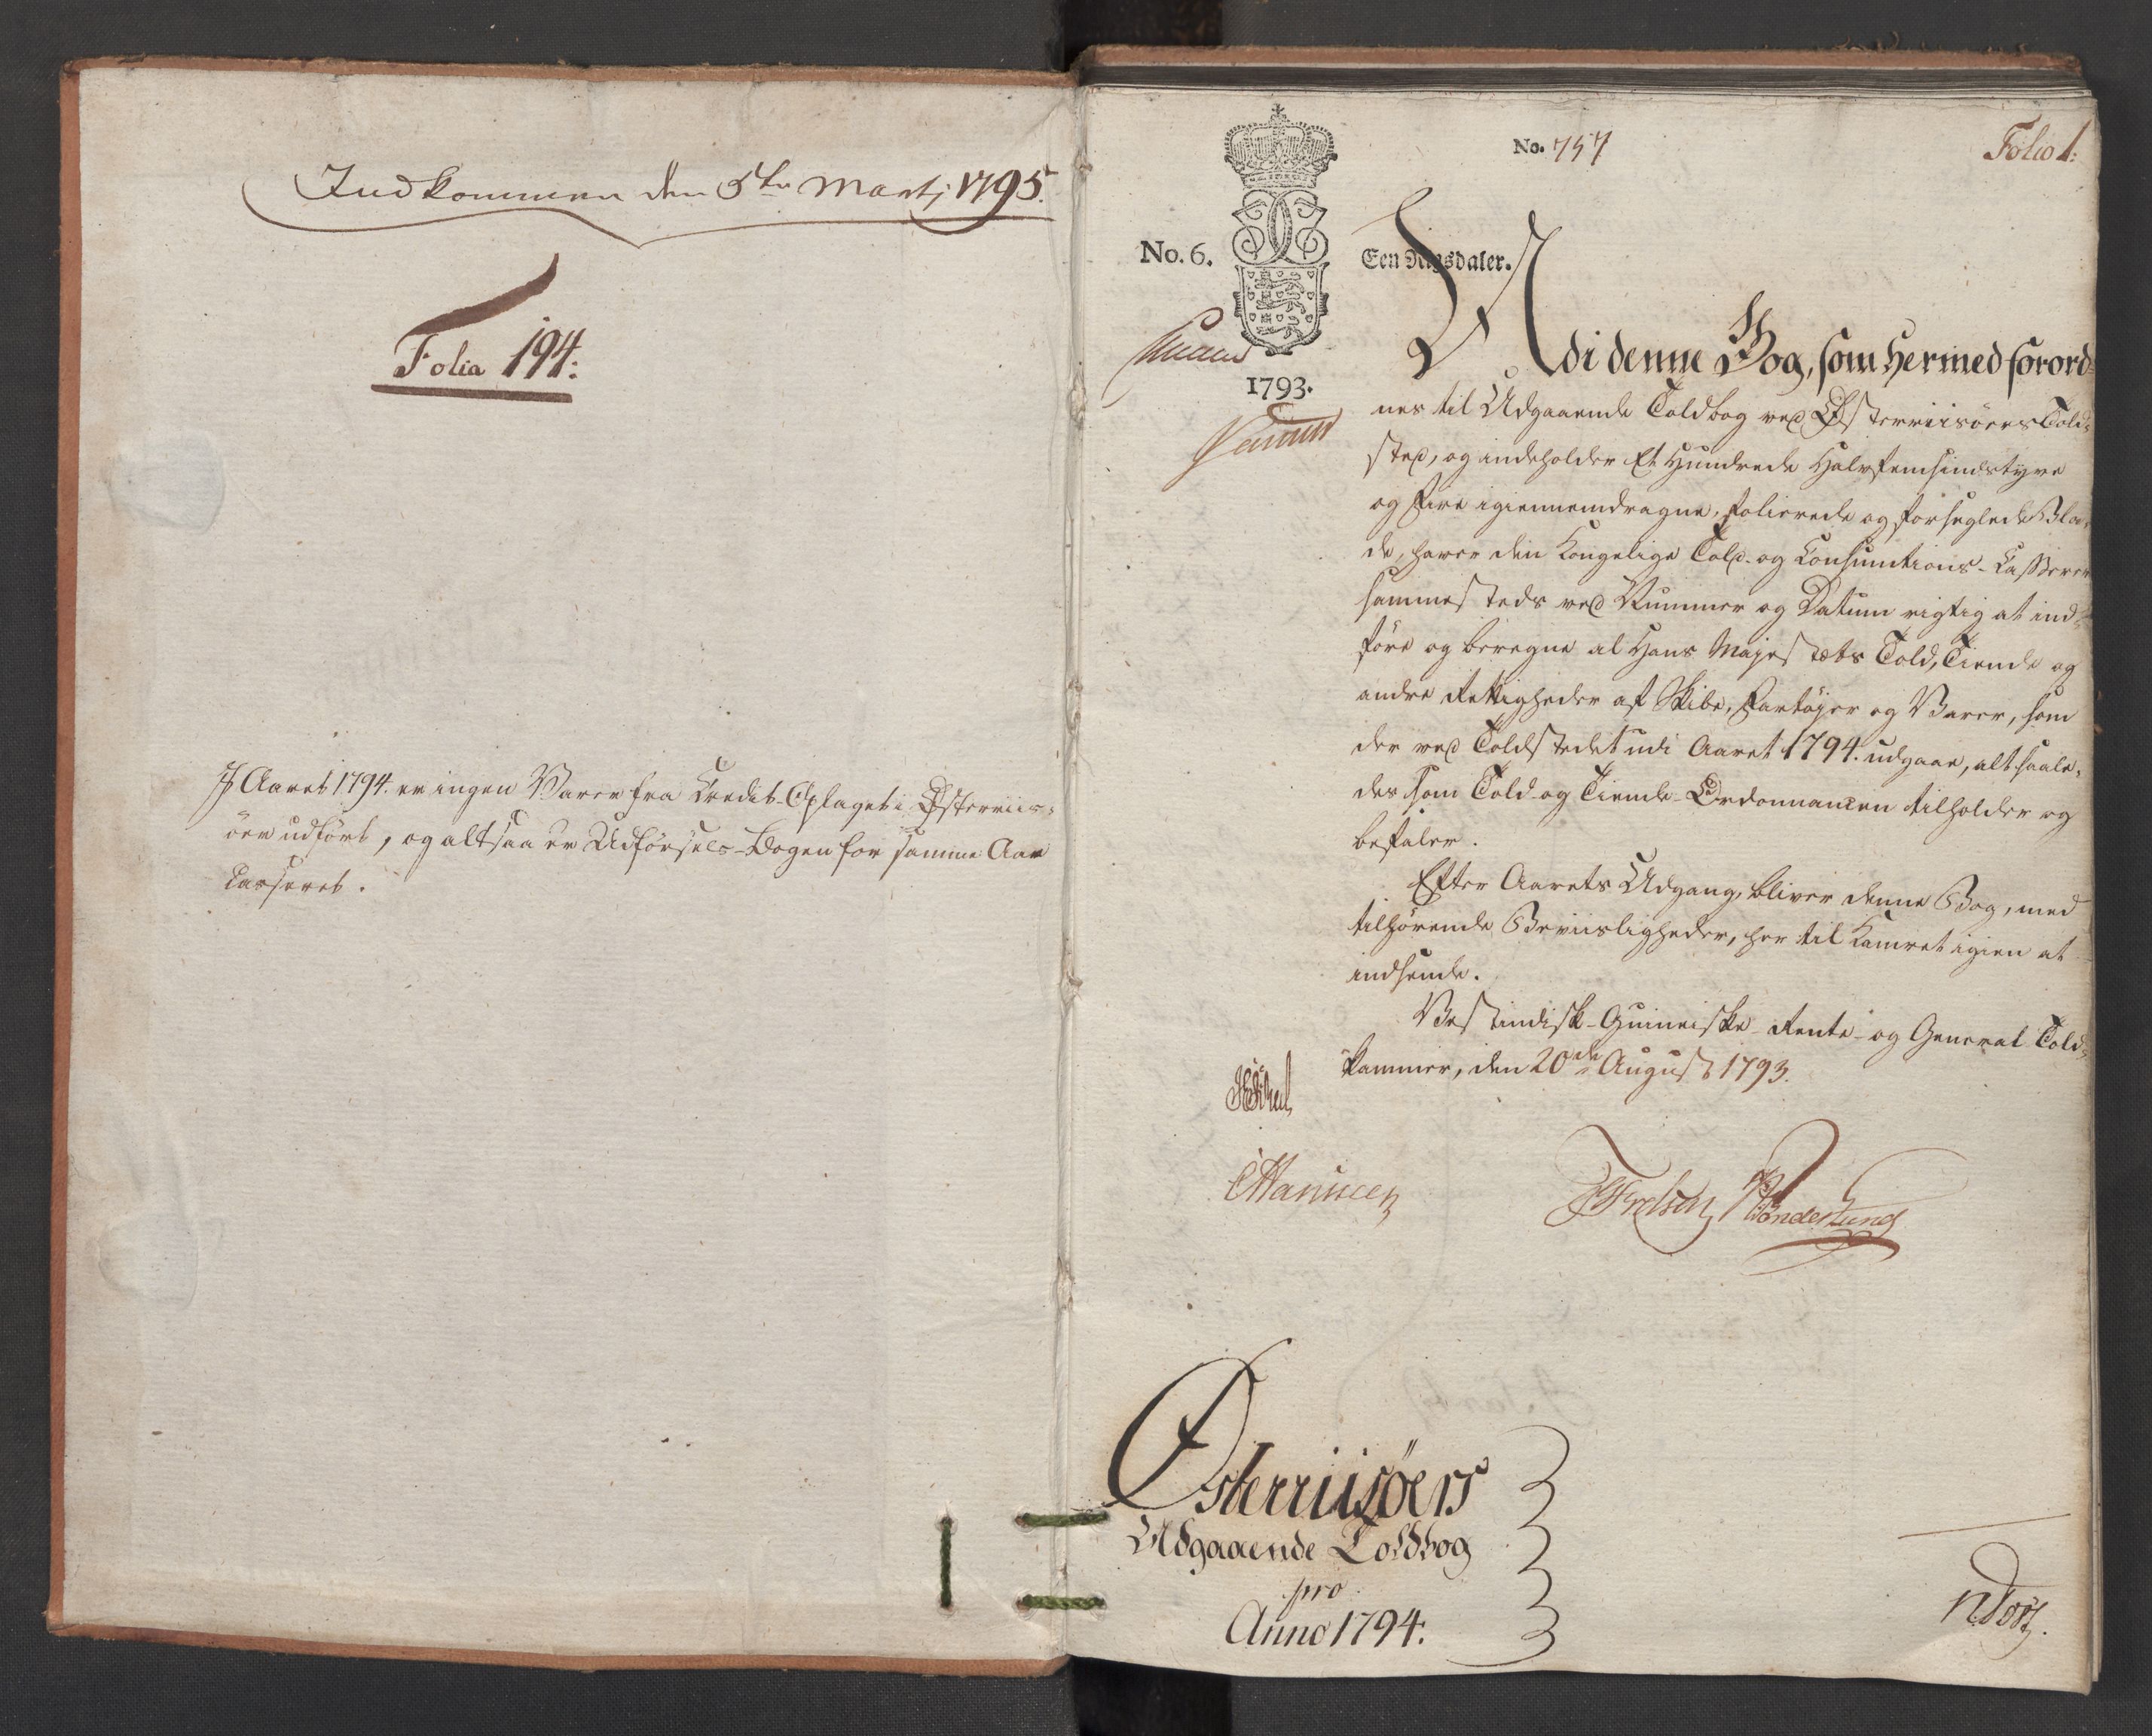 Indkommen den 5te Martj 1795.
Folia 194:
I Aaret 1794. er ingen Varer fra Credit-Oplaget i Østerriis-
öer udført, og altsaa er Udførsels-Bogen for samme Aar
casseret.
No. 757
Folio 1:
No. 6.
Een Rigsdaler.
1793.
Udi denne Bog, som hermed forord-
nes til Udgaaende Toldbog ved Østerriisöers Told-
sted, og indeholder Et Hundrede Halvfemsindstyve
og Fire igiennemdragne, folierede og forseglede Bla-
de, haver den Kongelige Told- og Consumtions-Casserer
sammesteds ved Nummer og Datum rigtig at ind-
føre og beregne al Hans Majestæts Told, Tiende og
andre Rettigheder af Skibe, Fartøjer og Varer, som
der ved Toldstedet udi Aaret 1794. udgaae, alt saale-
des som Told- og Tiende-Ordonnancen tilholder og
befaler.
Efter Aarets Udgang, bliver denne Bog, med
tilhørende Beviisligheder, her til Kamret igien at
indsende.
Vestindisk-Guineiske Rente- og General Told-
kammer, den 20de August 1793.
Østerriisöers
Udgaaende Toldbog
pro
Anno 1794.